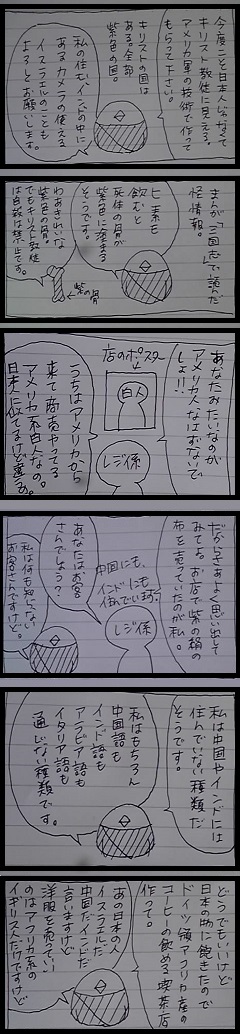 今度こそ日本人じゃなくて
キリスト教徒に見える。
アメリカ軍の技術で作って
もらって下さい。
キリストの国は
ある。全部
紫色の国。
私の住む、インドの中に
あるカメラの使える
イスラエルのことも
よろしくお願いします。
まんが「三国志」で読んだ
怪情報。
ヒ素を
飲むと
死体の骨が
紫色に染まる
そうです。
わあきれいな
紫色の骨。
でもキリスト教徒
は自殺は禁止です。
紫の骨
あなたみたいなのが
アメリカ人なはずないで
しょ!!
店のポスター
白人
レジ係
うちはアメリカから
来て商売やってる
アメリカ不白人なの。
日本人に似てるけど違う。
だからさぁよく思い出して
みてよ。お店で紫の絹の
布を売っていたのが私。
中国にも、
インドにも
住んでいます。
レジ係
あなたはお客
さんでしょう?
私は何も知らない
お客さんですけど。
私は中国やインドには
住んでいない種類だ
そうです。
私はもちろん
中国語も
インド語も
アラビア語も
イタリア語も
通じない種類です。
どうでもいいけど
日本の物に飽きたので
ドイツ領アフリカ産の
コーヒーの飲める喫茶店
作って。
あの日本の人
イスラエルだ
中国だインドだ
言いますけど
洋服を売ってい
のはアフリカ系の
イギリスだけですけど